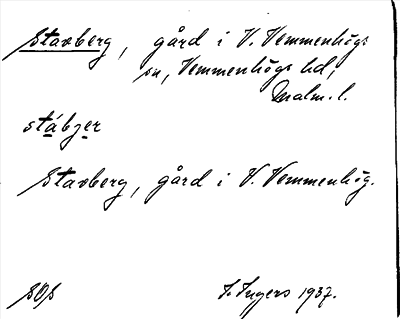 Stavberg, gård i V. Vemmenhögs
sn, Vemmenhögs hd,
Malm. l.
stábjer
Stavberg, gård i V. Vemmenhög.
SOS I. Ingers 1937.